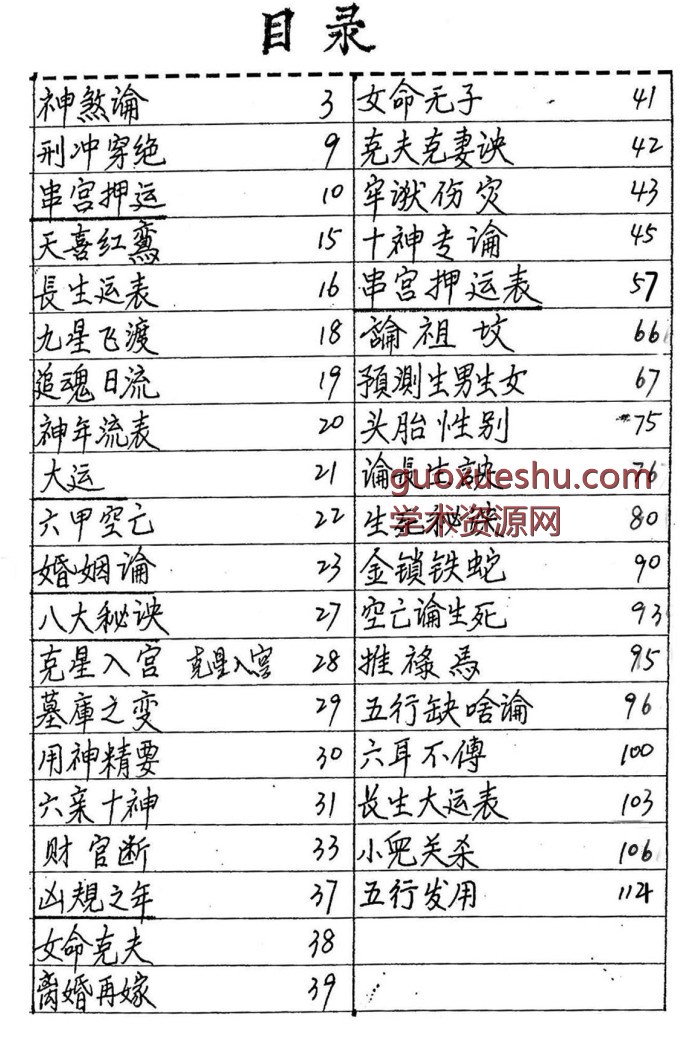 目录
神煞論 3
刑冲穿绝 9
串宫押运 10
天喜红鸾 15
長生运表 16
九星飞渡 18
追魂日流 19
神年流表 20
大运 21
六甲空亡 22
婚姻論 23
八大秘诀 27
克星入宫 克星入宫 28
墓庫之变 29
用神精要 30
六亲十神 31
财官断 33
凶規之年 37
女命克夫 38
离婚再嫁 39
女命无子 41
克夫克妻诀 42
牢狱伤灾 43
十神专论 45
串宫押运表 57
論祖坟 66
預测生男生女 67
头胎性别 75
论長生訣 76
guoxueshu.com
学术资源网
生死秘诀 80
金锁铁蛇 90
空亡论生死 93
推禄馬 95
五行缺啥论 96
六耳不傳 100
长生大运表 103
小兕关杀 106
五行发用 114